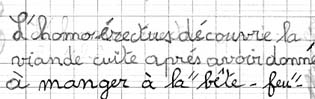 L'homo-érectus découvre la
viande cuite aprés avoir donné
à manger à la "bête-feu"